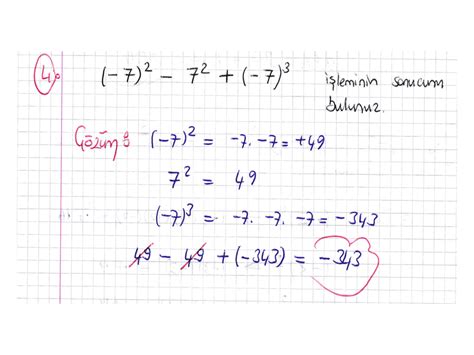 4. (-7)² - 7² + (-7)³ işleminin sonucunu
bulunuz.
Çözüm: (-7)² = -7. -7 = +49
7² = 49
(-7)³ = -7. -7. -7 = -343
49 - 49 + (-343) = -343